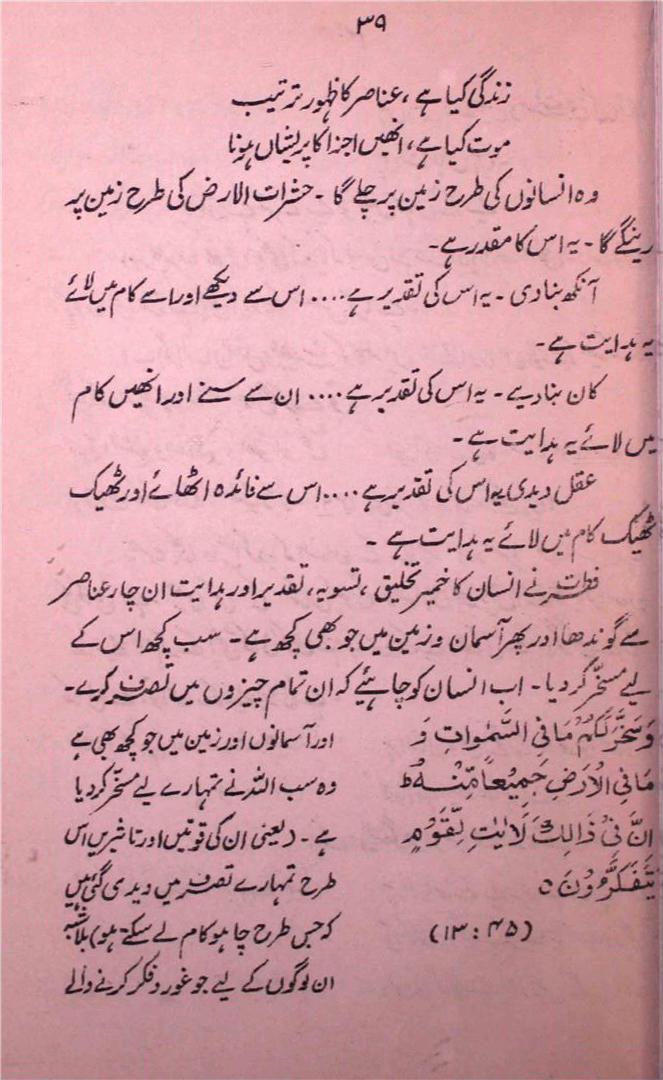 ۳۹
زندگی کیا ہے، عناصر کا ظہور ترتیب
موت کیا ہے، انھیں اجزا کا پریشاں ہونا
وہ انسانوں کی طرح زمین پر چلے گا۔ حشرات الارض کی طرح زمین پر
رینگے گا۔ یہ اس کا مقدر ہے۔
آنکھ بنا دی۔ یہ اس کی تقدیر ہے.... اس سے دیکھے اور اسے کام میں لائے
یہ ہدایت ہے۔
کان بنا دیے۔ یہ اس کی تقدیر ہے.... ان سے سنے اور انھیں کام
میں لائے یہ ہدایت ہے۔
عقل دیدی یہ اس کی تقدیر ہے.... اس سے فائدہ اٹھائے اور ٹھیک
ٹھیک کام میں لائے یہ ہدایت ہے۔
فطرت نے انسان کا خمیر تخلیق، تسویہ، تقدیر اور ہدایت ان چار عناصر
سے گوندھا اور پھر آسمان و زمین میں جو بھی کچھ ہے۔ سب کچھ اس کے
لیے مسخّر کر دیا۔ اب انسان کو چاہئیے کہ ان تمام چیزوں میں تصرف کرے۔
وَسَخَّرَ لَكُمْ مَا فِي السَّمٰوَاتِ وَ
مَا فِي الْاَرْضِ جَمِيْعاً مِّنْهُ ط
اِنَّ فِيْ ذَالِكَ لَاٰيٰتٍ لِّقَوْمٍ
يَّتَفَكَّرُوْنَ ○
(۴۵ : ۱۳)
اور آسمانوں اور زمین میں جو کچھ بھی ہے
وہ سب اللہ نے تمہارے لیے مسخّر کر دیا
ہے۔ (یعنی ان کی قوتیں اور تاثیریں اس
طرح تمہارے تصرف میں دیدی گئی ہیں
کہ جس طرح چاہو کام لے سکتے ہو) بلاشبہ
ان لوگوں کے لیے جو غور و فکر کرنے والے